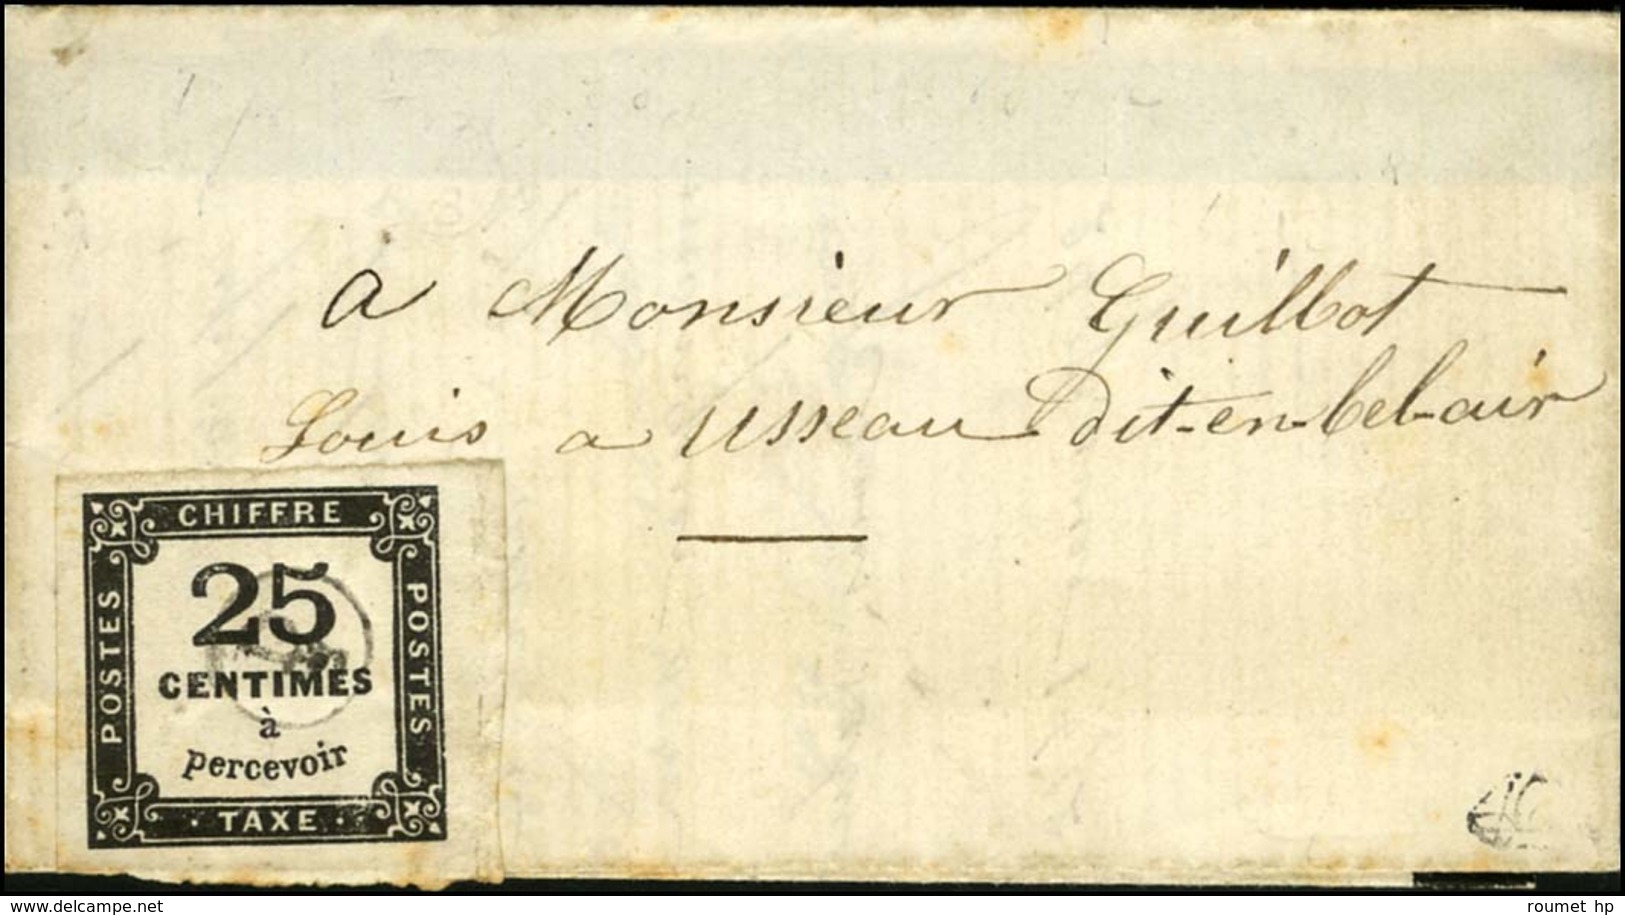 a Monsieur Guillot
Louis a Usseau dit-en-bel-air
CHIFFRE
POSTES
25
CENTIMES
à
percevoir
POSTES
· TAXE ·
www.delcampe.net
roumet hp